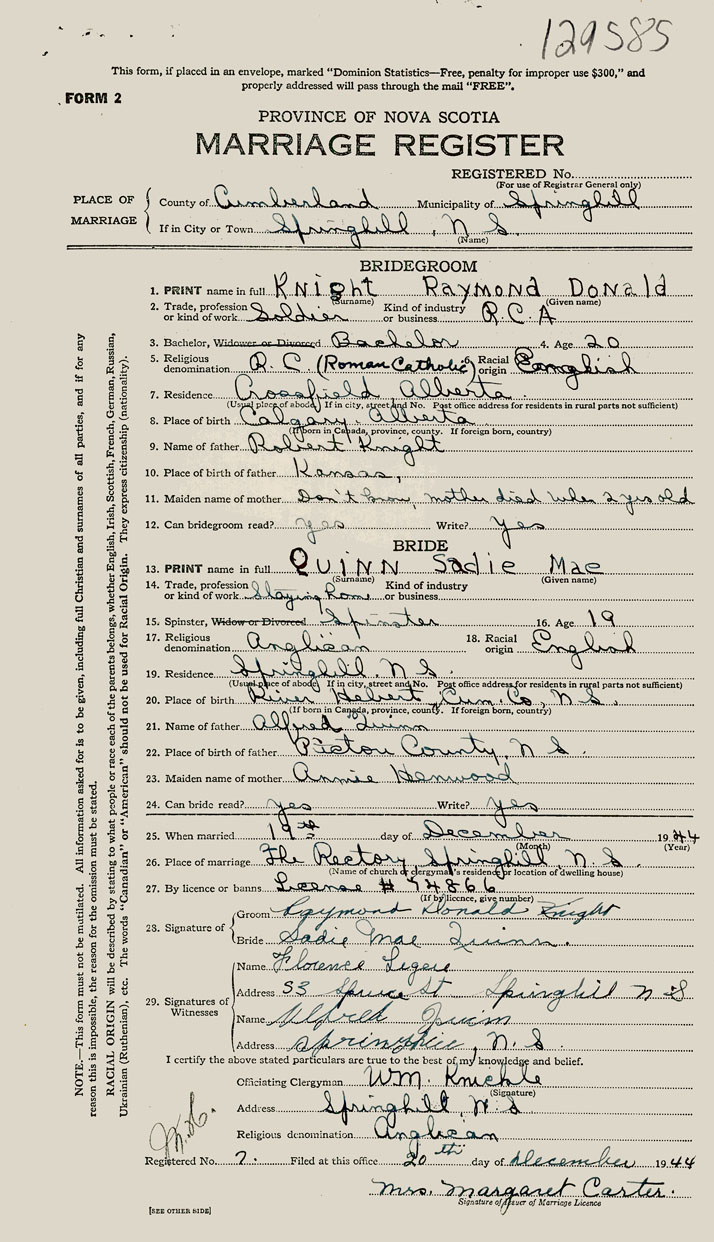 129585
This form, if placed in an envelope, marked "Dominion Statistics—Free, penalty for improper use $300," and
properly addressed will pass through the mail "FREE".
FORM 2
PROVINCE OF NOVA SCOTIA
MARRIAGE REGISTER
REGISTERED No.
(For use of Registrar General only)
PLACE OF MARRIAGE
County of Cumberland Municipality of Springhill
If in City or Town Springhill, N.S.
(Name)
BRIDEGROOM
1. PRINT name in full Knight Raymond Donald
(Surname) (Given name)
2. Trade, profession or kind of work Soldier Kind of industry or business R.C.A
3. Bachelor, Widower or Divorced Bachelor 4. Age 20
5. Religious denomination R.C (Roman Catholic) 6. Racial origin English
7. Residence Crossfield Alberta
(Usual place of abode. If in city, street and No. Post office address for residents in rural parts not sufficient)
8. Place of birth Calgary, Alberta
(If born in Canada, province, county. If foreign born, country)
9. Name of father Robert Knight
10. Place of birth of father Kansas,
11. Maiden name of mother Don't know, mother died when 2 yrs old
12. Can bridegroom read? yes Write? yes
BRIDE
13. PRINT name in full QUINN Sadie Mae
(Surname) (Given name)
14. Trade, profession or kind of work Staying home Kind of industry or business
15. Spinster, Widow or Divorced Spinster 16. Age 19
17. Religious denomination Anglican 18. Racial origin English
19. Residence Springhill, N.S.
(Usual place of abode. If in city, street and No. Post office address for residents in rural parts not sufficient)
20. Place of birth River Hebert, Cum. Co, N.S.
(If born in Canada, province, county. If foreign born, country)
21. Name of father Alfred Quinn
22. Place of birth of father Pictou County, N.S.
23. Maiden name of mother Annie Henwood
24. Can bride read? yes Write? yes
25. When married 19th day of December 1944
(Month) (Year)
26. Place of marriage The Rectory Springhill N.S.
(Name of church or clergyman's residence or location of dwelling house)
27. By licence or banns License # 74866
(If by licence, give number)
28. Signature of Groom Raymond Donald Knight
Bride Sadie Mae Quinn.
29. Signatures of Witnesses Name Florence Legere
Address 53 Spruce St Springhill N S
Name Alfred Quinn
Address Springhill, N.S.
I certify the above stated particulars are true to the best of my knowledge and belief.
Officiating Clergyman WM. Knickle
(Signature)
Address Springhill, N.S
Religious denomination Anglican
Registered No. 7. Filed at this office 20th day of December 1944
Mrs. Margaret Carter.
Signature of Issuer of Marriage Licence
[SEE OTHER SIDE]
NOTE.—This form must not be mutilated. All information asked for is to be given, including full Christian and surnames of all parties, and if for any
reason this is impossible, the reason for the omission must be stated.
RACIAL ORIGIN will be described by stating to what people or race each of the parents belongs, whether English, Irish, Scottish, French, German, Russian,
Ukrainian (Ruthenian), etc. The words "Canadian" or "American" should not be used for Racial Origin. They express citizenship (nationality).